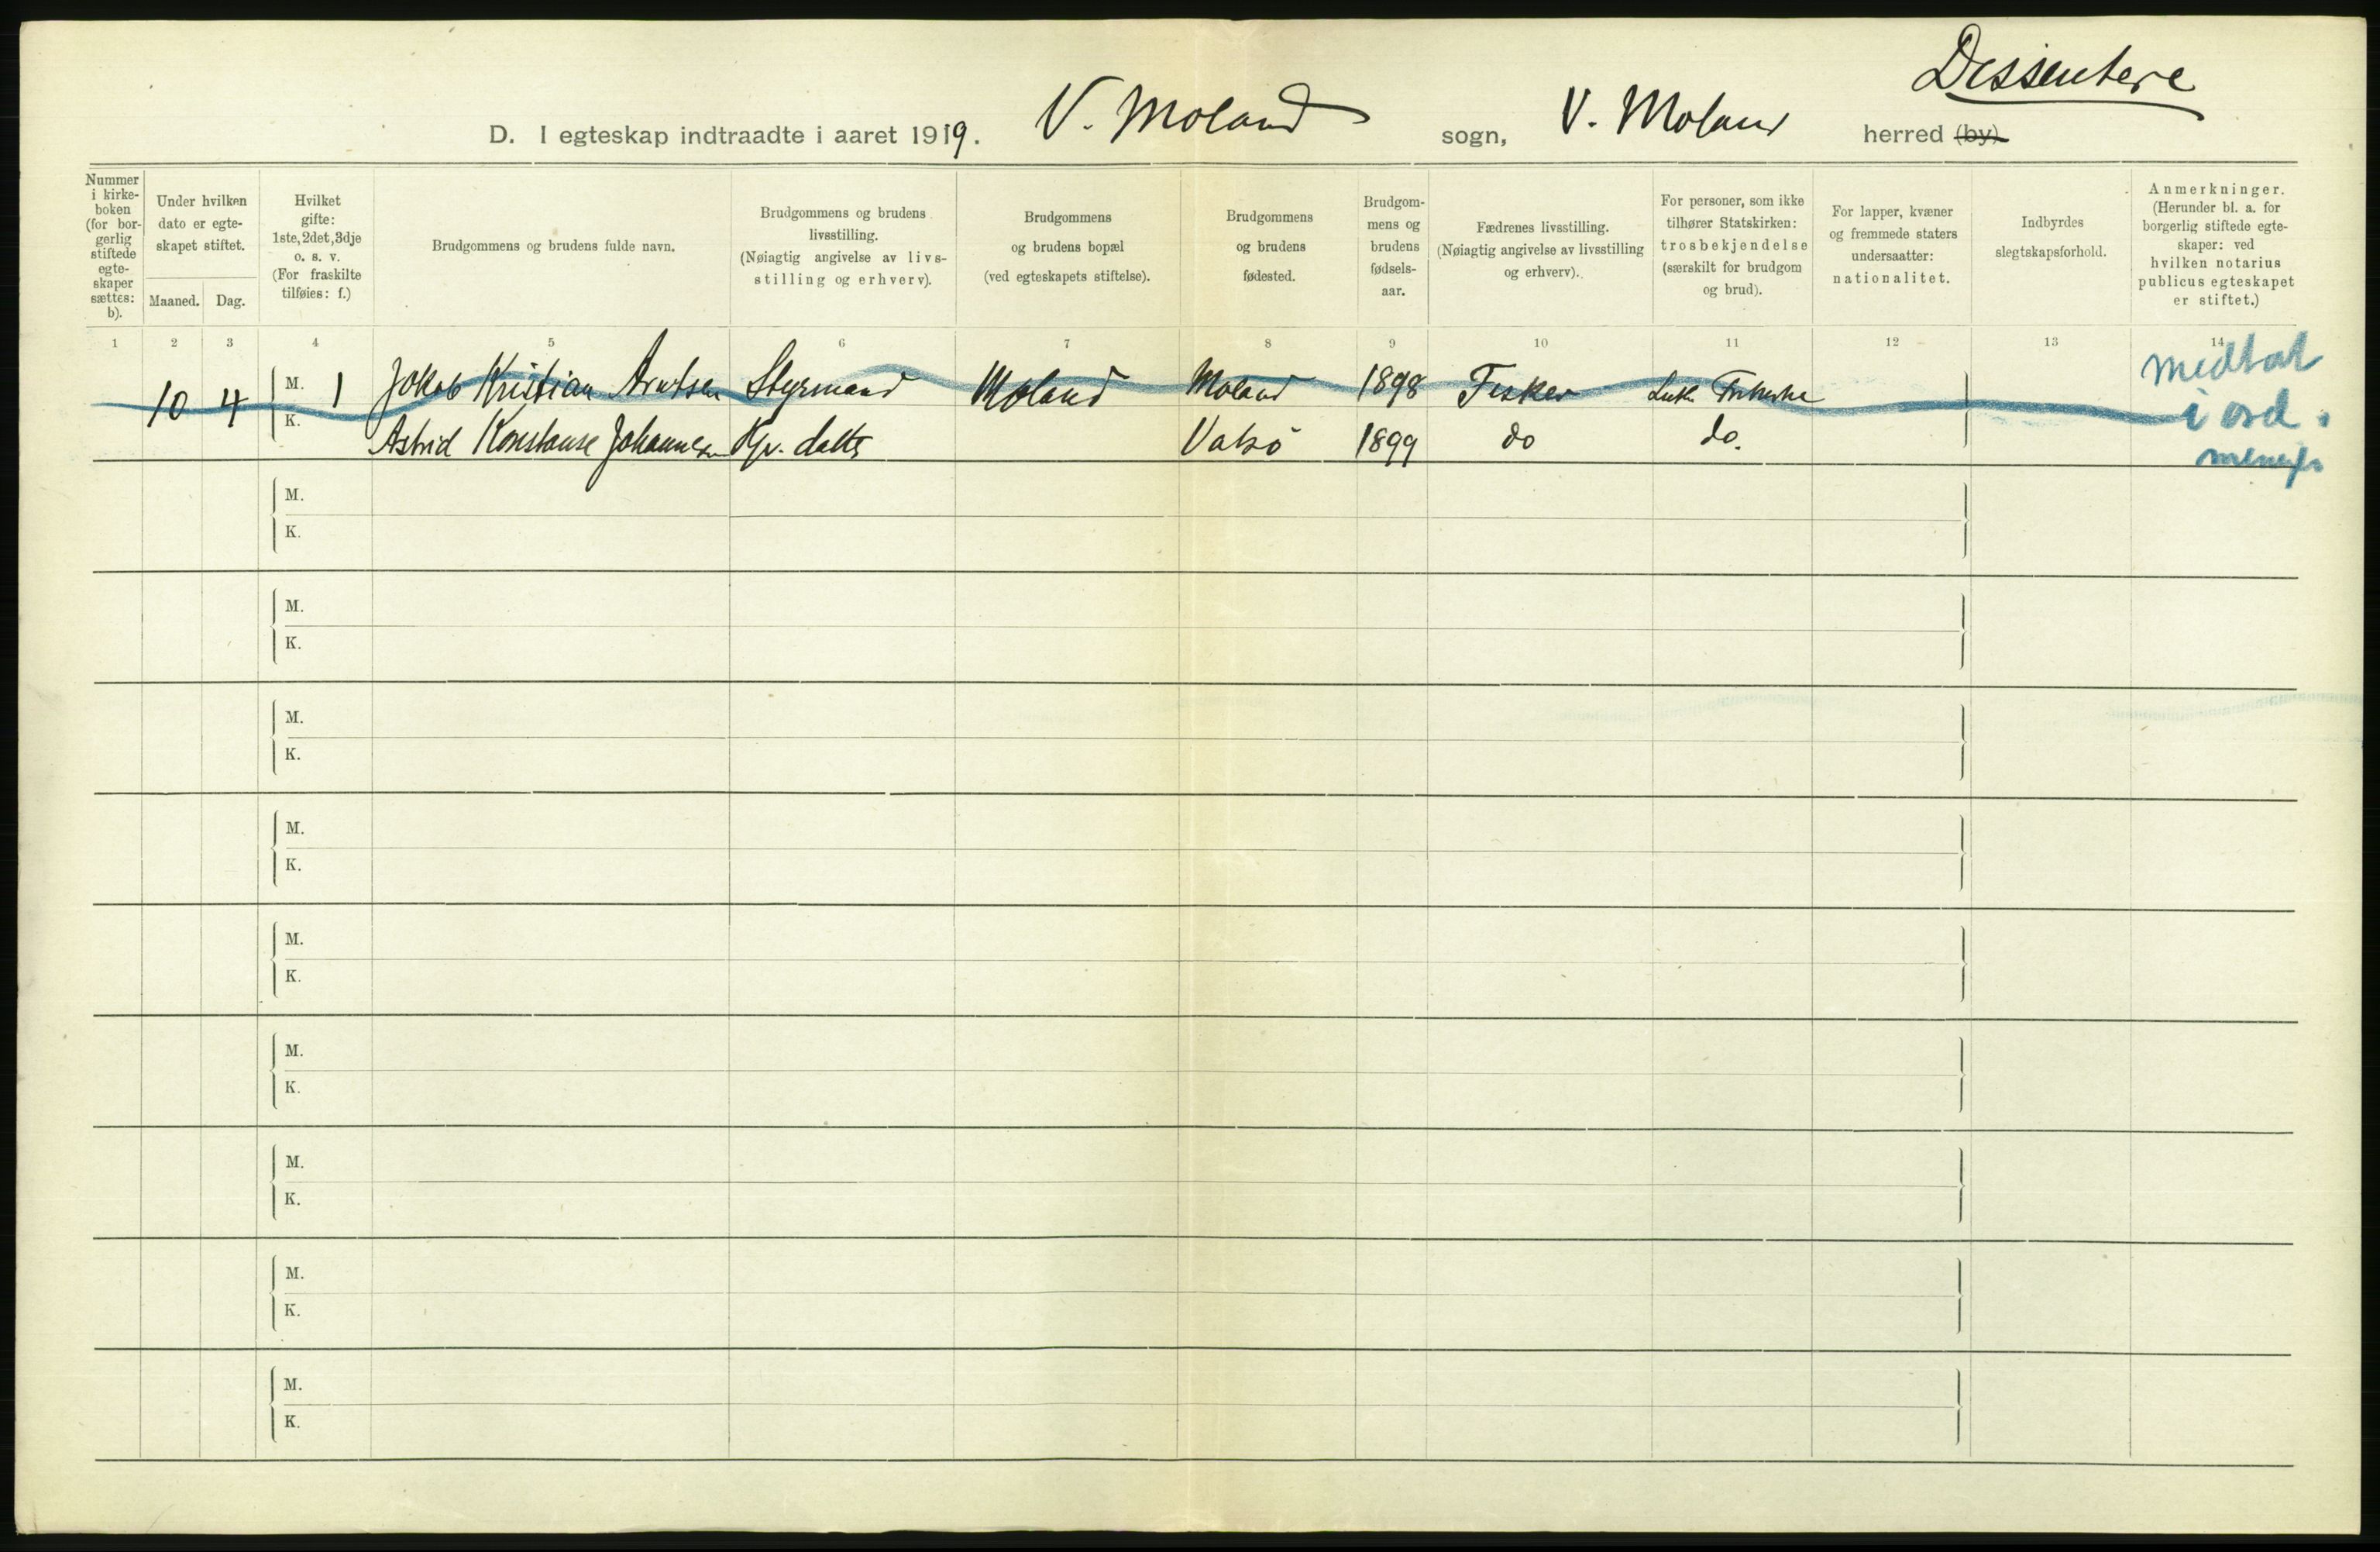 Dissentere
D. I egteskap indtraadte i aaret 1919. V. Moland sogn, V. Moland herred (by)
Nummer i kirkeboken (for borgerlig stiftede egteskaper sættes: b).
Under hvilken dato er egteskapet stiftet.
Maaned. Dag.
Hvilket gifte: 1ste, 2det, 3dje o. s. v. (For fraskilte tilføies: f.)
Brudgommens og brudens fulde navn.
Brudgommens og brudens livsstilling. (Nøiagtig angivelse av livsstilling og erhverv).
Brudgommens og brudens bopæl (ved egteskapets stiftelse).
Brudgommens og brudens fødested.
Brudgommens og brudens fødselsaar.
Fædrenes livsstilling. (Nøiagtig angivelse av livsstilling og erhverv).
For personer, som ikke tilhører Statskirken: trosbekjendelse (særskilt for brudgom og brud).
For lapper, kvæner og fremmede staters undersaatter: nationalitet.
Indbyrdes slegtskapsforhold.
Anmerkninger. (Herunder bl. a. for borgerlig stiftede egteskaper: ved hvilken notarius publicus egteskapet er stiftet.)
1 2 3 4 5 6 7 8 9 10 11 12 13 14
10 4 M. 1 Jokob Kristian Arntsen Styrmand Moland Moland 1898 Fisker Luth. Frikirke
K. Astrid Konstanse Johannesen do 1899 do.
medtat
i ord.
M.
K.
M.
K.
M.
K.
M.
K.
M.
K.
M.
K.
M.
K.
M.
K.
M.
K.